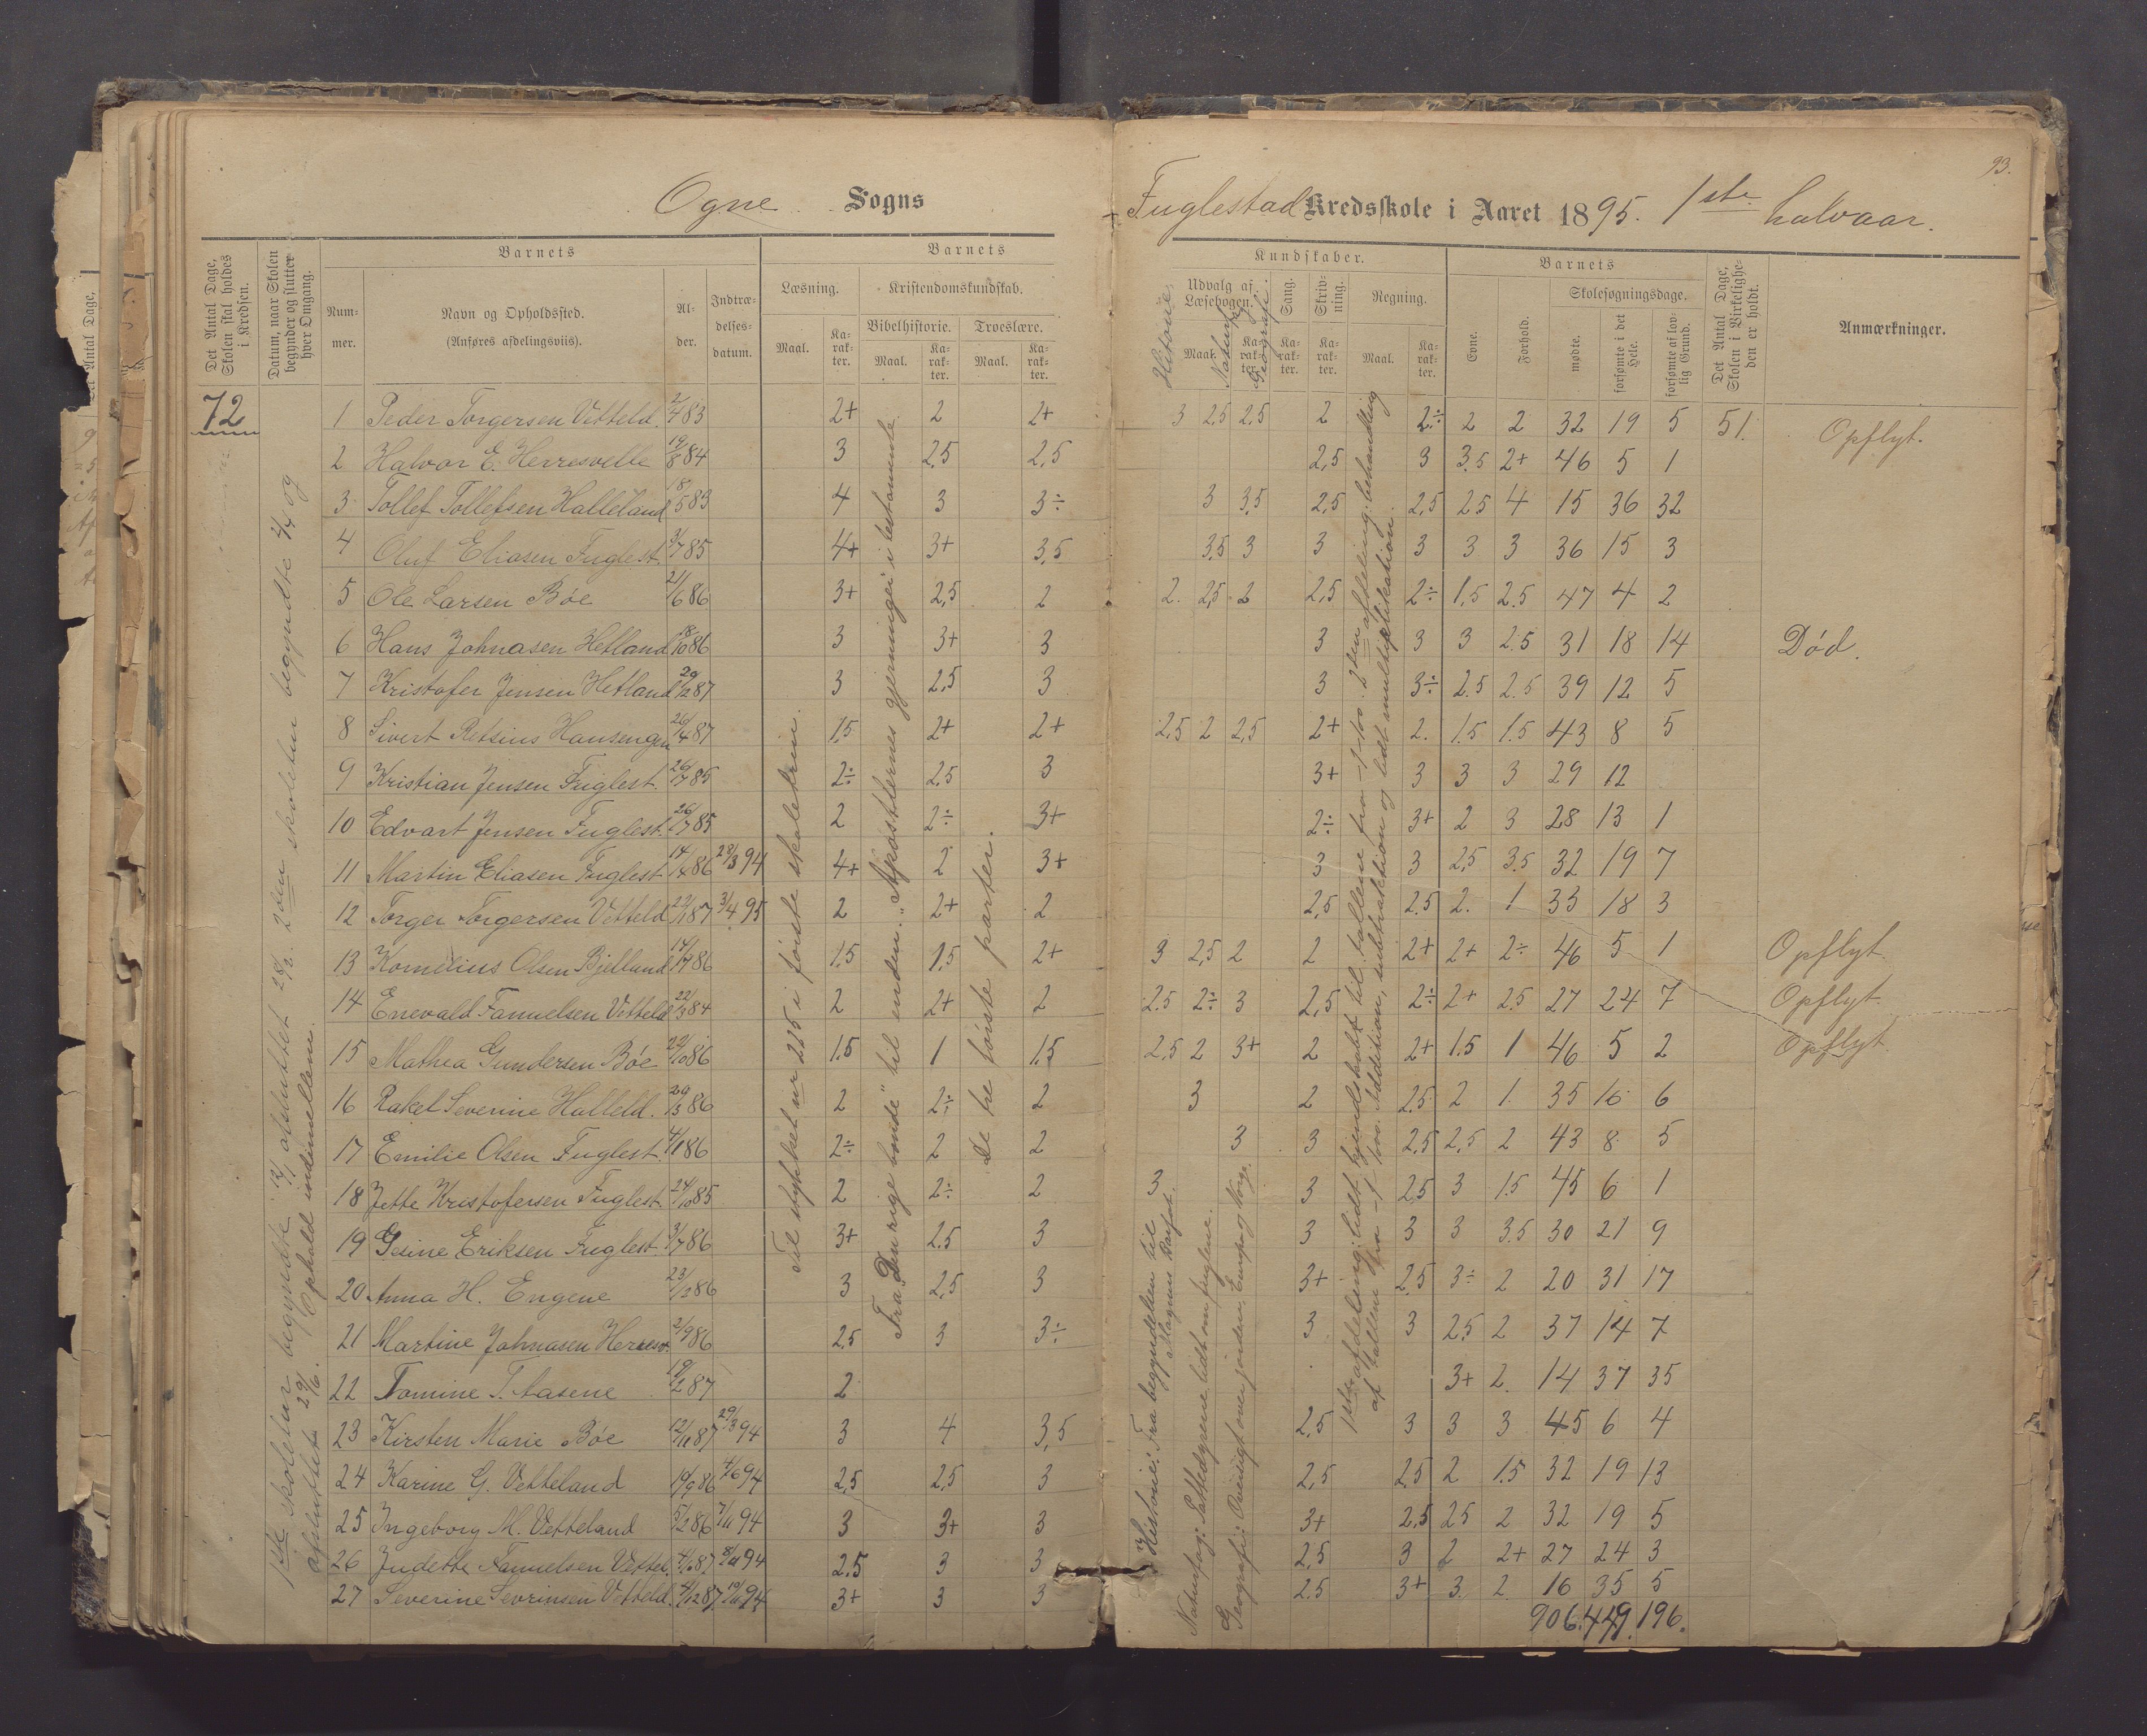 93.
Ogne Sogns
Fuglestad Kredsskole i Aaret 1895. 1ste halvaar.
Det Antal Dage, Skolen skal holdes i Kredsen.
Datum, naar Skolen begynder og slutter hver Omgang.
Barnets
Nummer.
Navn og Opholdssted.
(Anføres afdelingsviis).
Alder.
Indtrædelsesdatum.
Barnets
Læsning.
Maal.
Karakter.
Kristendomskundskab.
Bibelhistorie.
Maal.
Karakter.
Troeslære.
Maal.
Karakter.
Kundskaber.
Historie
Udvalg af Læsebogen.
Maal.
Naturfag
Karakter.
Geografi.
Sang.
Karakter.
Skrivning.
Karakter.
Regning.
Maal.
Karakter.
Barnets
Evne.
Forhold.
Skolesøgningsdage.
mødte.
forsømte i det Hele.
forsømte af lovlig Grund.
Det Antal Dage, Skolen i Virkeligheden er holdt.
Anmærkninger.
72
1 Peder Torgersen Vetteld. 2/4 83 2+ 2 2+ 3 2,5 2,5 2 2÷ 2 2 32 19 5 51. Opflyt.
2 Halvor E. Herresvelle 19/8 84 3 2,5 2,5 2,5 3 3.5 2+ 46 5 1
3 Tollef Tollefsen Halleland 18/5 83 4 3 3÷ 3 3,5 2,5 2,5 2,5 4 15 36 32
4 Oluf Eliasen Fuglest. 3/7 85 4+ 3+ 3,5 3,5 3 3 3 3 3 36 15 3
5 Ole Larsen Bøe 21/6 86 3+ 2,5 2 2. 2,5 2 2,5 2÷ 1,5 2.5 47 4 2
6 Hans Johnasen Hetland 18/10 86 3 3+ 3 3 3 3 2.5 31 18 14 Død.
7 Kristofer Jensen Hetland 29/12 87 3 2,5 3 3 3÷ 2.5 2.5 39 12 5
8 Sivert Retsius Hansengen 26/4 87 1,5 2+ 2+ 2,5 2 2,5 2+ 2. 1.5 1.5 43 8 5
9 Kristian Jensen Fuglest. 26/7 85 2÷ 2,5 3 3+ 3 3 3 29 12
10 Edvart Jensen Fuglest. 26/7 85 2 2÷ 3+ 2÷ 3+ 2 3 28 13 1
11 Martin Eliasen Fuglest 14/8 86 28/3 94 4+ 2 3+ 3 3 2,5 3.5 32 19 7
12 Torger Torgersen Vetteld 22/1 87 3/4 95 2 2+ 2 2,5 2.5 2. 1 33 18 3
13 Kornelius Olsen Bjelland 14/7 86 1,5 1,5 2+ 3 2,5 2 2 2+ 2+ 2÷ 46 5 1 Opflyt.
14 Enevald Tanuelsen Vetteld 22/3 84 2 2+ 2 2.5 2÷ 3 2,5 2÷ 2+ 2.5 27 24 7 Opflyt.
15 Mathea Gundersen Bøe 22/10 86 1.5 1 1,5 2,5 2 3+ 2 2+ 1.5 1 46 5 2 Opflyt.
16 Rakel Severine Halleld. 29/3 86 2 2÷ 2 3 2 2.5 2 1. 35 16 6
17 Emilie Olsen Fuglest. 4/1 86 2÷ 2 2 3 3 2,5 2,5 2 43 8 5
18 Jette Kristofersen Fuglest. 24/10 85 2 2÷ 2 3 3 2.5 3 1.5 45 6 1
19 Gesine Eriksen Fuglest. 3/7 86 3+ 2.5 3 3 3 3 3.5 30 21 9
20 Anna H. Engene 23/12 86 3 2,5 3 3+ 2.5 3÷ 2 20 31 17
21 Martine Johnasen Herresv. 2/9 86 2,5 3 3÷ 3 3 2.5 2 37 14 7
22 Tomine T. Aasene 19/2 87 2 3+ 2. 14 37 35
23 Kirsten Marie Bøe 12/11 87 29/3 94 3 4 3,5 2,5 3 3 3 45 6 4
24 Karine G. Vetteland 19/9 86 4/6 94 2,5 2,5 3 2,5 2,5 2 1.5 32 19 13
25 Ingeborg M. Vetteland 5/2 86 7/11 94 3 3+ 3 3+ 2,5 2.5 2 32 19 5
26 Judette Tanuelsen Vettel. 4/6 87 8/11 94 2.5 3 3 2.5 3 2 2+ 27 24 3
27 Severine Sevrinsen Vetteld. 4/12 87 10/11 94 3+ 3 3 2.5 3+ 3. 2. 16 35 5
906. 449. 196.
1ste skoletur begyndte 12/1 afsluttet 28/2. 2den skoletur begyndte 2/4 og
afsluttet 29/6. Ophold indimellem.
Til stykket nr 215 i første skoletrin.
Fra „Den rige bonde" til enden. „Apostlernes gjerninger i testamente
De tre første parter.
Historie: Fra begyndelsen til
Magnus Barfot.
Naturfag: Pattedyrene lidt om fuglene.
Geografi: Oversigt over jorden. Europa og Norge.
1ste afdeling: lidt kjendskab til tallene fra 1-100. 2den afdeling: behandling
af tallene fra 1- 100. Addition, subtraktion og lidt multiplikation.